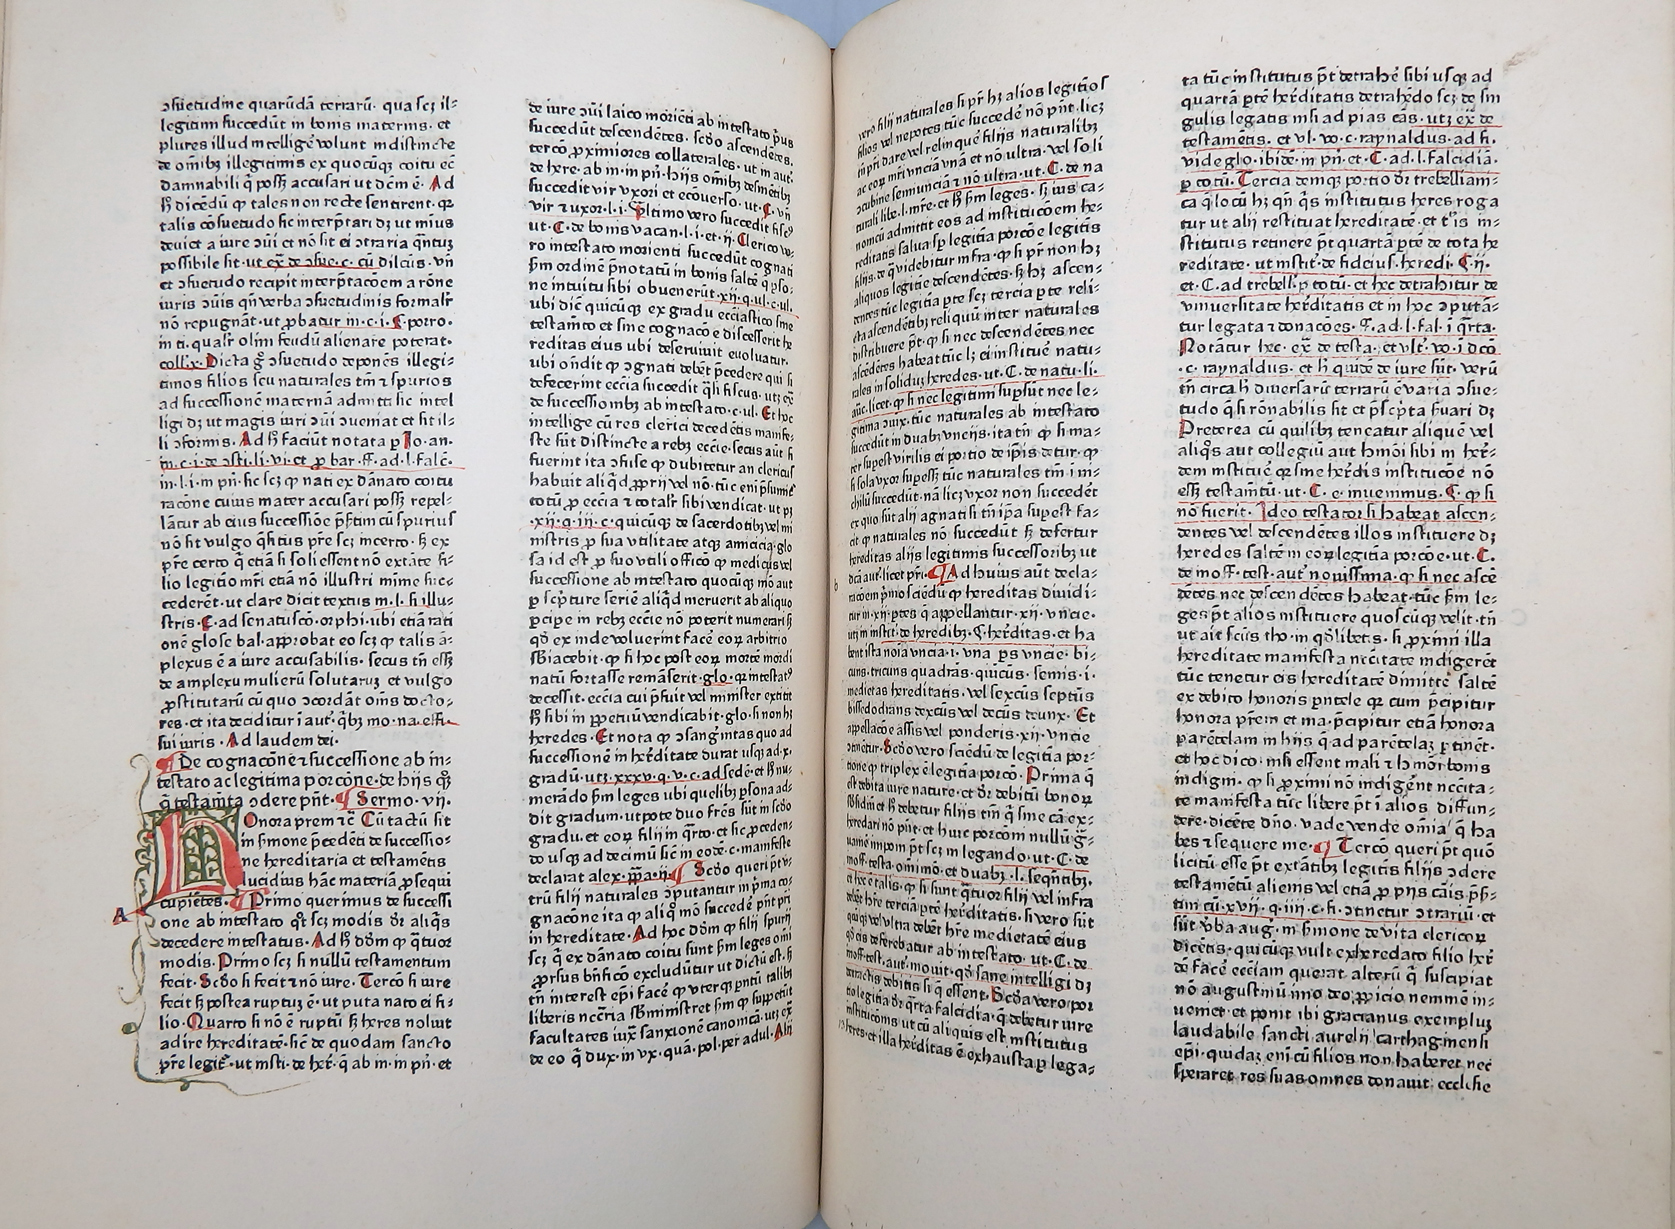 ↄſuetudine quarūdā terrarū· qua ſcꝫ il⸗
legitimi ſuccedūt in bonis maternis· et
plures illud intelligē volunt indiſtincte
de om̄ibꝫ illegitimis ex quocūqꝫ coitu ec̄
damnabili q̄ poſſꝫ accuſari ut dc̄m ē· Ad
ħ dicēdū ꝙ tales non recte ſentirent· qꝛ
talis cōſuetudo ſic interp̄tari dꝫ ut minus
deuiet a iure ↄūi et nō ſit ei ↄtraria q̄ntuꝫ
poſſibile ſit· ut ex̄ de ↄſue· c· cū dilc̄us· vn̄
et ↄſuetudo recipit interp̄tacōem a rōne
iuris ↄūis qn̄ verba ↄſuetudinis formalr̄
nō repugnāt· ut ꝓbatur in· c· i· C· porro·
in ti· qualr̄ olim feudū alienare poterat·
coll'·x· Dicta g̊ ↄſuetudo deponēs illegi⸗
timos filios ſeu naturales tm̄ ⁊ ſpurios
ad ſucceſſionē maternā admitti ſic intel
ligi dꝫ ut magis iuri ↄūi ↄueniat et ſit il⸗
li ↄformis· Ad ħ faciūt notata ꝑ Io· an·
in· c· i· de ↄſti· li· vi· et ꝑ bar· ff· ad· l· falc̄·
in· l· i· in pn̄· ſic ſcꝫ ꝙ nati ex dānato coitu
racōne cuius mater accuſari poſſꝫ repel⸗
lātur ab eius ſucceſſiōe p̄ſtim cū ſpurius
nō ſit vulgo q̄ſitus pr̄e ſcꝫ incerto· ſꝫ ex
pr̄e certo q̄ etiā ſi ſoli eſſent nō extāte fi⸗
lio legitio mr̄i etiā nō illuſtri mīme ſuc⸗
cederēt· ut clare dicit textus in· l· ſi illu⸗
ſtris· C· ad ſenatuſcō· orphi· ubi etiā rati
onē gloſe bal· approbat eo ſcꝫ ꝙ talis ā⸗
plexus ē a iure accuſabilis· ſecus tn̄ eſſꝫ
de amplexu mulierū ſolutarū et vulgo
ꝓſtitutarū cū quo ↄcordāt om̄s docto⸗
res· et ita deciditur ī aut'· q̄bꝫ mo· na· effi⸗
ſui iuris· Ad laudem dei·
De cognacōne ⁊ ſucceſſione ab in⸗
teſtato ac legitima porcōne· de hijs qꝫ
q̄ teſtam̄ta ↄdere pn̄t· Sermo· vij·
HOnora prem ⁊c̄ Cū tactū ſit
in ſermone p̄cedēti de ſucceſſio⸗
ne hereditaria et teſtamētis
lucidius hāc materiā ꝓſequi
cupiētes· Primo querimus de ſucceſſi
one ab inteſtato qt̄ ſcꝫ modis dr̄ aliq̄s
decedere inteſtatus· Ad ħ dōm̄ ꝙ q̄tuor
modis· Primo ſcꝫ ſi nullū teſtamentum
fecit· Scd̄o ſi fecit ⁊ nō iure· Tercō ſi iure
fecit ſꝫ poſtea ruptuꝫ ē· ut puta nato ei fi⸗
lio· Quarto ſi nō ē ruptū ſꝫ heres noluit
adire hereditatē· ſic̄ de quodam ſancto
pr̄e legit̄· ut inſti· de her̄· q̄ ab in· in pn̄· et
de iure ↄūi laico moriēti ab inteſtato p̄us
ſuccedūt deſcendētes· ſcd̄o aſcendētes·
tercō ꝓximiores collaterales· ut in aut'·
de here· ab in· in pn̄· hijs om̄ibꝫ deficiētibꝫ
ſuccedit vir vxori et ecōuerſo· ut· C· vn̄
vir ⁊ uxor· l· i· Vltimo vero ſuccedit fiſcꝰ
ut· C· de bonis vacan· l· i· et· ij· Clerico ve⸗
ro inteſtato morienti ſuccedūt cognati
ẜm ordinē p̄notatū in bonis ſaltē q̄ ꝑſo⸗
ne intuitu ſibi obuenerūt· xij· q· ul· c· ul·
ubi dic̄ quicūqꝫ ex gradu ecc̄iaſtico ſine
teſtamto et ſine cognacōe diſceſſerit he
reditas eius ubi deſeruiuit euoluatur·
ubi on̄dit ꝙ ↄgnati debēt p̄cedere qui ſi
defecerint ecc̄ia ſuccedit q̄ſi fiſcus· utꝫ ex̄
de ſucceſſionibꝫ ab inteſtato· c· ul· Et hoc
intellige cū res clerici decedētis manife⸗
ſte ſūt diſtincte a rebꝫ ecc̄ie· ſecus aūt ſi
fuerint ita ↄfuſe ꝙ dubitetur an clericus
habuit aliq̄d ꝓprij vel nō· tūc em̄ p̄ſumit̄
totū ꝓ ecc̄ia ⁊ totalr̄ ſibi vendicat· ut pꝫ
·xij· q· iij· c· quicūqꝫ de ſacerdotibꝫ vel mi
niſtris ꝓ ſua utilitate atqꝫ amicicia· glo
ſa id eſt ꝓ ſuo vtili officō ꝙ medicus vel
ſucceſſione ab inteſtato quocūqꝫ mō aut
ꝑ ſcp̄ture ſeriē aliq̄d meruerit ab aliquo
ꝑcipe in rebꝫ ecc̄ie nō poterit numerari ſꝫ
qd̄ ex inde voluerint facē eoꝝ arbitrio
ſb̄iacebit· ꝙ ſi hoc poſt eoꝝ mortē mordi
natū forſtaſſe remāſerit· glo· qꝛ inteſtatꝰ
deceſſit· ecc̄ia cui p̄fuit vel miniſter extitit
ħ ſibi in ꝑpetuū vendicabit· glo· ſi non hꝫ
heredes· Et nota ꝙ ↄſanguitas quo ad
ſucceſſionē in her̄ditate durat uſqꝫ ad· x·
gradū· utꝫ· xxxv· q· v· c· ad ſedē· et ħ nu⸗
merādo ẜm leges ubi quelibꝫ ꝑſona ad⸗
dit gradum· utpote duo fr̄es ſūt in ſcd̄o
gradu· et eoꝝ filij in q̄rto· et ſic ꝓceden⸗
do uſqꝫ ad decimū ſic̄ in eodē· c· manifeſte
declarat alex· pp̄a· ij· Scd̄o queri pt̄ v⸗
trū filij naturales ↄputantur in p̄ma co⸗
gnacōne ita ꝙ aliq̄ mō ſuccedē pn̄t pr̄i
in hereditate· Ad hoc dōm̄ ꝙ filij ſpurij
ſcꝫ q̄ ex dānato coitu ſunt ẜm leges om̄i
ꝓrſus bn̄ficō excludūtur ut dictū eſt· ſꝫ
tn̄ intereſt ep̄i facē ꝙ uterqꝫ pn̄tū talibꝫ
liberis nccr̄ia ſb̄miniſtret ẜm ꝙ ſuppetūt
facultates iuxᷓ ſanxionē canonicā· utꝫ ex̄
de eo q̄ dux· in vx· quā· pol· per adul· Alij
vero filij naturales ſi pr̄ hꝫ alios legitioſ
filios vel nepotes tūc ſuccedē nō pn̄t· licꝫ
in pr̄i dare vel relinquē filijs naturalibꝫ
ac eoꝝ mr̄i vnciā vnā et nō ultra· vel ſo li
ↄcubine ſemunciā ⁊ nō ultra· ut· C· de na
turali libe· l· mr̄e· et ħ ẜm leges· ſꝫ ius ca⸗
nonicū admittit eos ad inſtitucōem he⸗
reditatis ſalua ſp̄ legitia porcōe legitis
filijs· de q̄ videbitur infra· ꝙ ſi pr̄ non hꝫ
aliquos legitie deſcendētes· ſꝫ hꝫ aſcen⸗
dentes tūc legitia pte ſcꝫ tercia pte reli⸗
cta aſcendētibꝫ reliquū inter naturales
diſtribuere pt̄· ꝙ ſi nec deſcendētes nec
aſcēdētes habeat tūc lꝫ ei inſtituē natu⸗
rales in ſolidum heredes· ut· C· de natu· li·
aūc· licet· ꝙ ſi nec legitimi ſupſūt nec le⸗
gitima ↄuix· tūc naturales ab inteſtato
ſuccedūt in duabꝫ vncijs· ita tn̄ ꝙ ſi ma⸗
ter ſupeſt virilis ei portio de ip̄is detur· ꝙ
ſi ſola vxor ſupeſſꝫ tūc naturales tm̄ i m⸗
chilū ſuccedūt· nā licꝫ vxor non ſuccedēt
ex quo ſūt alij agnati ſi tn̄ ip̄a ſupeſt fa⸗
cit ꝙ naturales nō ſuccedūt ſꝫ defertur
hereditas alijs legitimis ſucceſſoribꝫ ut
dc̄a aut'· licet pr̄i· Ad huius aūt decla⸗
racōem p̄mo ſciēdū ꝙ hereditas diuidi⸗
tur in· xij· ptes q̄ appellantur· xij· vncie·
utꝫ in inſtit· de heredibꝫ· C· her̄ditas· et ha
bent iſta noīa vncia· i· vna ps vncie· bi⸗
cuns· tricuns quadrās· quicūs· ſemis· i·
medietas hereditatis· vel ſexcūs ſeptūs
biſſe dodrans dexcūs vel decūs deunx· Et
appellacōe aſſis vel ponderis· xij· vncie
ↄtinētur· Scd̄o vero ſciēdū de legitia por⸗
tione ꝙ triplex ē legitia porcō· Prima q̄
eſt debita iure nature· et dr̄ debitū bonoꝝ
ſb̄ſidiū et ħ debetur filijs tm̄ q̄ ſine cā ex⸗
heredari nō pn̄t· et huic porcōni nullū g̊⸗
uamē imponi pt̄ ſcꝫ in legando· ut· C· de
inoff· teſta· om̄imō· et duabꝫ· l· ſeqn̄tibꝫ·
et hec ē talis· ꝙ ſi ſunt q̄tuor filij vel infra
debēt hr̄e terciā ptē her̄ditatis· ſi vero ſūt
quīqꝫ vel ultra debēt hr̄e medietatē eius
qd̄ eis deferebatur ab inteſtato· ut· C· de
inoff· teſt· aut'· nouit· qd̄ ſane intelligi dꝫ
detractis debitis ſi q̄ eſſent· Scd̄a vero por
tio legitia dr̄ q̄rta falcidia· q̄ debetur iure
inſtitucōnis ut cū aliquis eſt inſtitutus
heres· et illa her̄ditas ē exhauſta ꝑ lega⸗
b
A
ta tūc inſtitutus pt̄ detrahē ſibi uſqꝫ ad
quartā ptē her̄ditatis detrahēdo ſcꝫ de ſin
gulis legatis niſi ad pias cās· utꝫ ex̄ de
teſtamētis· et vl· vo· c· raynaldus· ad fi·
vide glo· ibidē· in pn̄· et· C· ad· l· falcidiā·
ꝑ totū· Tercia demqꝫ portio dr̄ trebelliani⸗
ca q̄ locū hꝫ qn̄ q̄s inſtitutus heres roga
tur ut alij reſtituat hereditatē· et tūc is in⸗
ſtitutus retinere pt̄ quartā ptē de tota he
reditate· ut inſtit· de fideicuſ· heredi· C· ij·
et· C· ad trebell· ꝑ totū· et hec detrahitur de
vniuerſitate her̄ditatis et in hoc ↄputā⸗
tur legata ⁊ donacōes· ff· ad· l· fal· i q̄rta·
Notātur hec· ex̄ de teſta· et vlt· vo· i dc̄ō
·c· raynaldus· et ħ quidē de iure ſūt· verū
tn̄ circa ħ diuerſarū terrarū ē varia ↄſue⸗
tudo q̄ ſi rōnabilis ſit et p̄ſcp̄ta ẜuari dꝫ
Preterea cū quilibꝫ teneatur aliquē vel
aliq̄s aut collegiū aut hmōi ſibi in her̄⸗
dem inſtituē qꝛ ſine her̄dis inſtitucōe nō
eſſꝫ teſtamtū· ut· C· e· inuenimus· C· ꝙ ſi
nō fuerit· Ideo teſtator ſi habeat aſcen⸗
dentes vel deſcendētes illos inſtituere dꝫ
heredes ſaltē in eoꝝ legitia porcōe· ut· C·
de inoff· teſt· aut'· nouiſſima· ꝙ ſi nec aſcē
dētes nec deſcendētes habeat· tūc ẜm le⸗
ges pt̄ alios inſtituere quoſcūqꝫ velit· tn̄
ut ait ſc̄us tho· in qd̄libetis· ſi ꝓximi illa
hereditate manifeſta nec̄itate indigerēt
tūc tenetur eis hereditatē dimittē ſaltē
ex debito honoris pn̄tele qꝛ cum p̄cipitur
honora pr̄em et ma· p̄cipitur etiā honora
parētelam in hijs q̄ ad parētelaꝫ ꝑtinēt·
et hoc dico· niſi eſſent mali ⁊ īhoneſtorum bonis
indigni· ꝙ ſi ꝓximi nō indigēt neccita⸗
te manifeſta tūc libere pt̄ ī alios diffun⸗
dere· dicēte dn̄o· vade vende om̄ia q̄ ha
bes ⁊ ſequere me· Tercō queri pt̄ quō
licitū eſſe pt̄ extātibꝫ legitis filijs ↄdere
teſtamētū alienis vel etiā ꝓ pijs cāis· p̄ſ⸗
tim cū· xvij· q· iiij· c· ſi· ↄtinetur ↄtrariū· et
ſūt v̄ba aug· in ſermone de vita clericoꝝ
dicētis· quicūqꝫ vult exheredato filio her̄
dē facē ecc̄iam querat alterū q̄ ſuſcipiat
nō auguſtinū imo deo ꝓpicio nemīnē in⸗
ueniet· et ponit ibi gracianus exempluꝫ
laudabile ſancti aurelij carthaginenſi
ep̄i· quidaꝫ em̄ cū filios non haberet nec
ſperaret res ſuas omnes donauit eccleſie